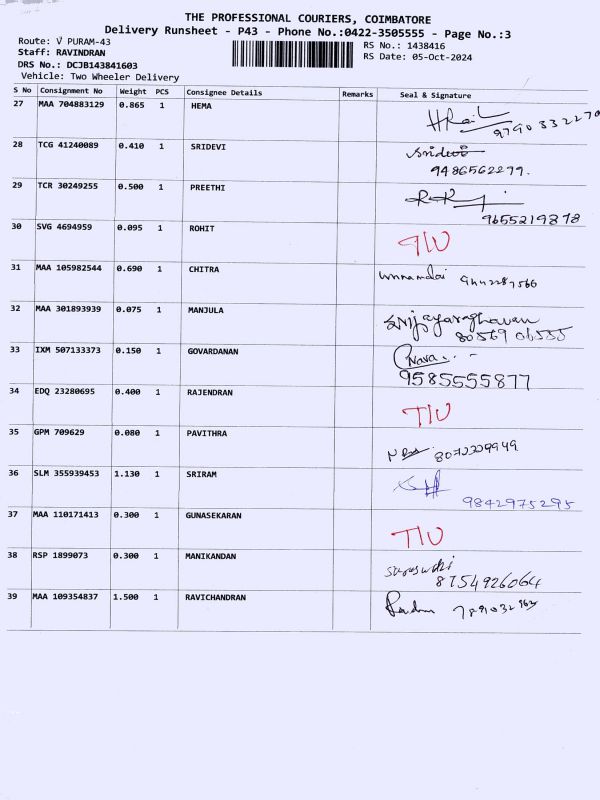 THE PROFESSIONAL COURIERS, COIMBATORE
Delivery Runsheet - P43 - Phone No.:0422-3505555 - Page No.:3
Route: V PURAM-43
RS No.: 1438416
Staff: RAVINDRAN
RS Date: 05-Oct-2024
DRS No.: DCJB143841603
Vehicle: Two Wheeler Delivery
S No Consignment No Weight PCS Consignee Details Remarks Seal & Signature
27 MAA 704883129 0.865 1 HEMA
28 TCG 41240089 0.410 1 SRIDEVI Sridevi
9486562279.
29 TCR 30249255 0.500 1 PREETHI
9655219878
30 SVG 4694959 0.095 1 ROHIT TIU
31 MAA 105982544 0.690 1 CHITRA
32 MAA 301893939 0.075 1 MANJULA
80569 06555
33 IXM 507133373 0.150 1 GOVARDANAN
9585555877
34 EDQ 23280695 0.400 1 RAJENDRAN TIU
35 GPM 709629 0.080 1 PAVITHRA
36 SLM 355939453 1.130 1 SRIRAM
9842975295
37 MAA 110171413 0.300 1 GUNASEKARAN TIU
38 RSP 1899073 0.300 1 MANIKANDAN
8754926064
39 MAA 109354837 1.500 1 RAVICHANDRAN